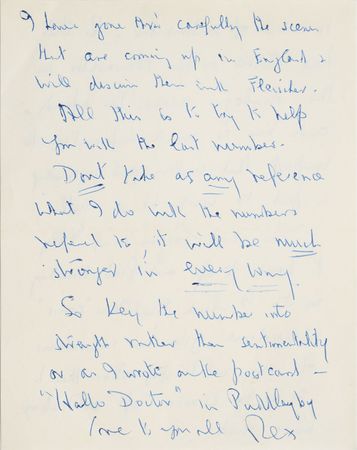 I have gone thro' carefully the scenes
that are coming up in England &
will discuss them with Fleischer.
All this is to try to help
you with the last number.
Don't take as any reference
what I do with the numbers
refered to, it will be much
stronger in every way.
So key the number into
strength rather than sentimentality
or as I wrote on the postcard –
"Hallo Doctor" in Puddleby
love to you all Rex